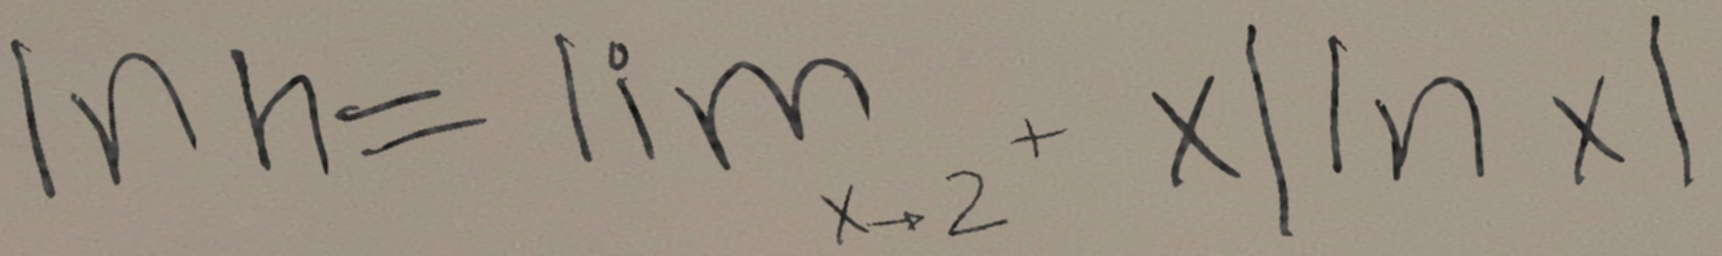 ln h = lim_{x→2^+} x|ln x|